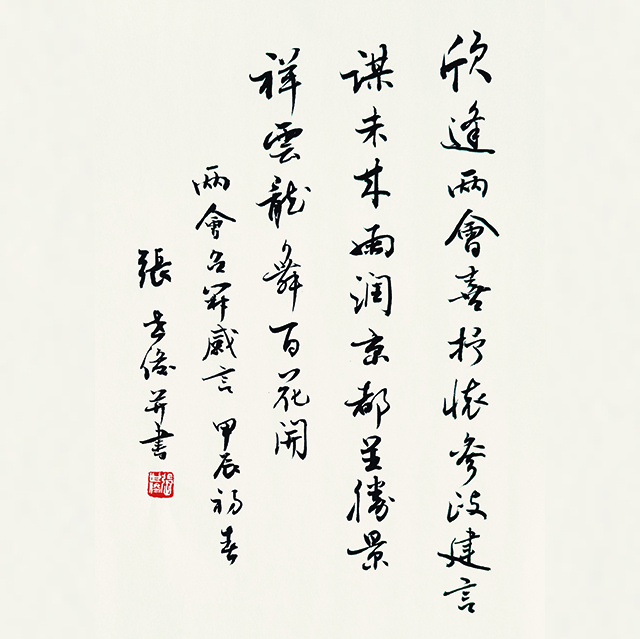 欣逢兩會喜抒懷參政建言
謀未來雨润京都呈勝景
祥雲龍舞百花開
兩會召開感言 甲辰初春
張 并書